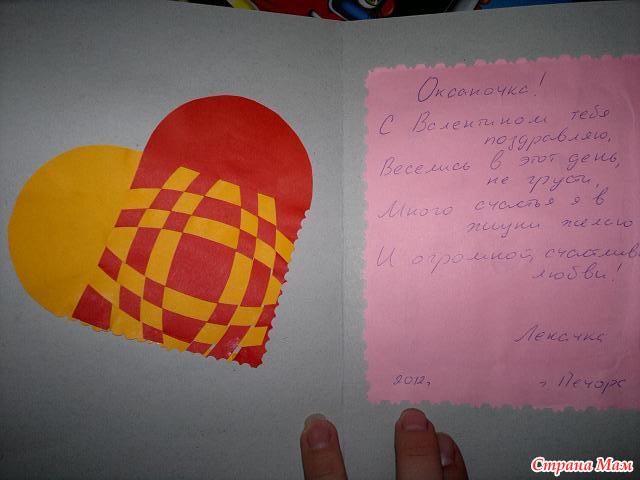 Оксаночка!
С Валентином тебя
поздравляю,
Веселись в этот день,
не грусти,
Много счастья я в
жизни желаю
И огромной, счастлив
любви!
Леначка
2012г. г. Печора
Страна Мам